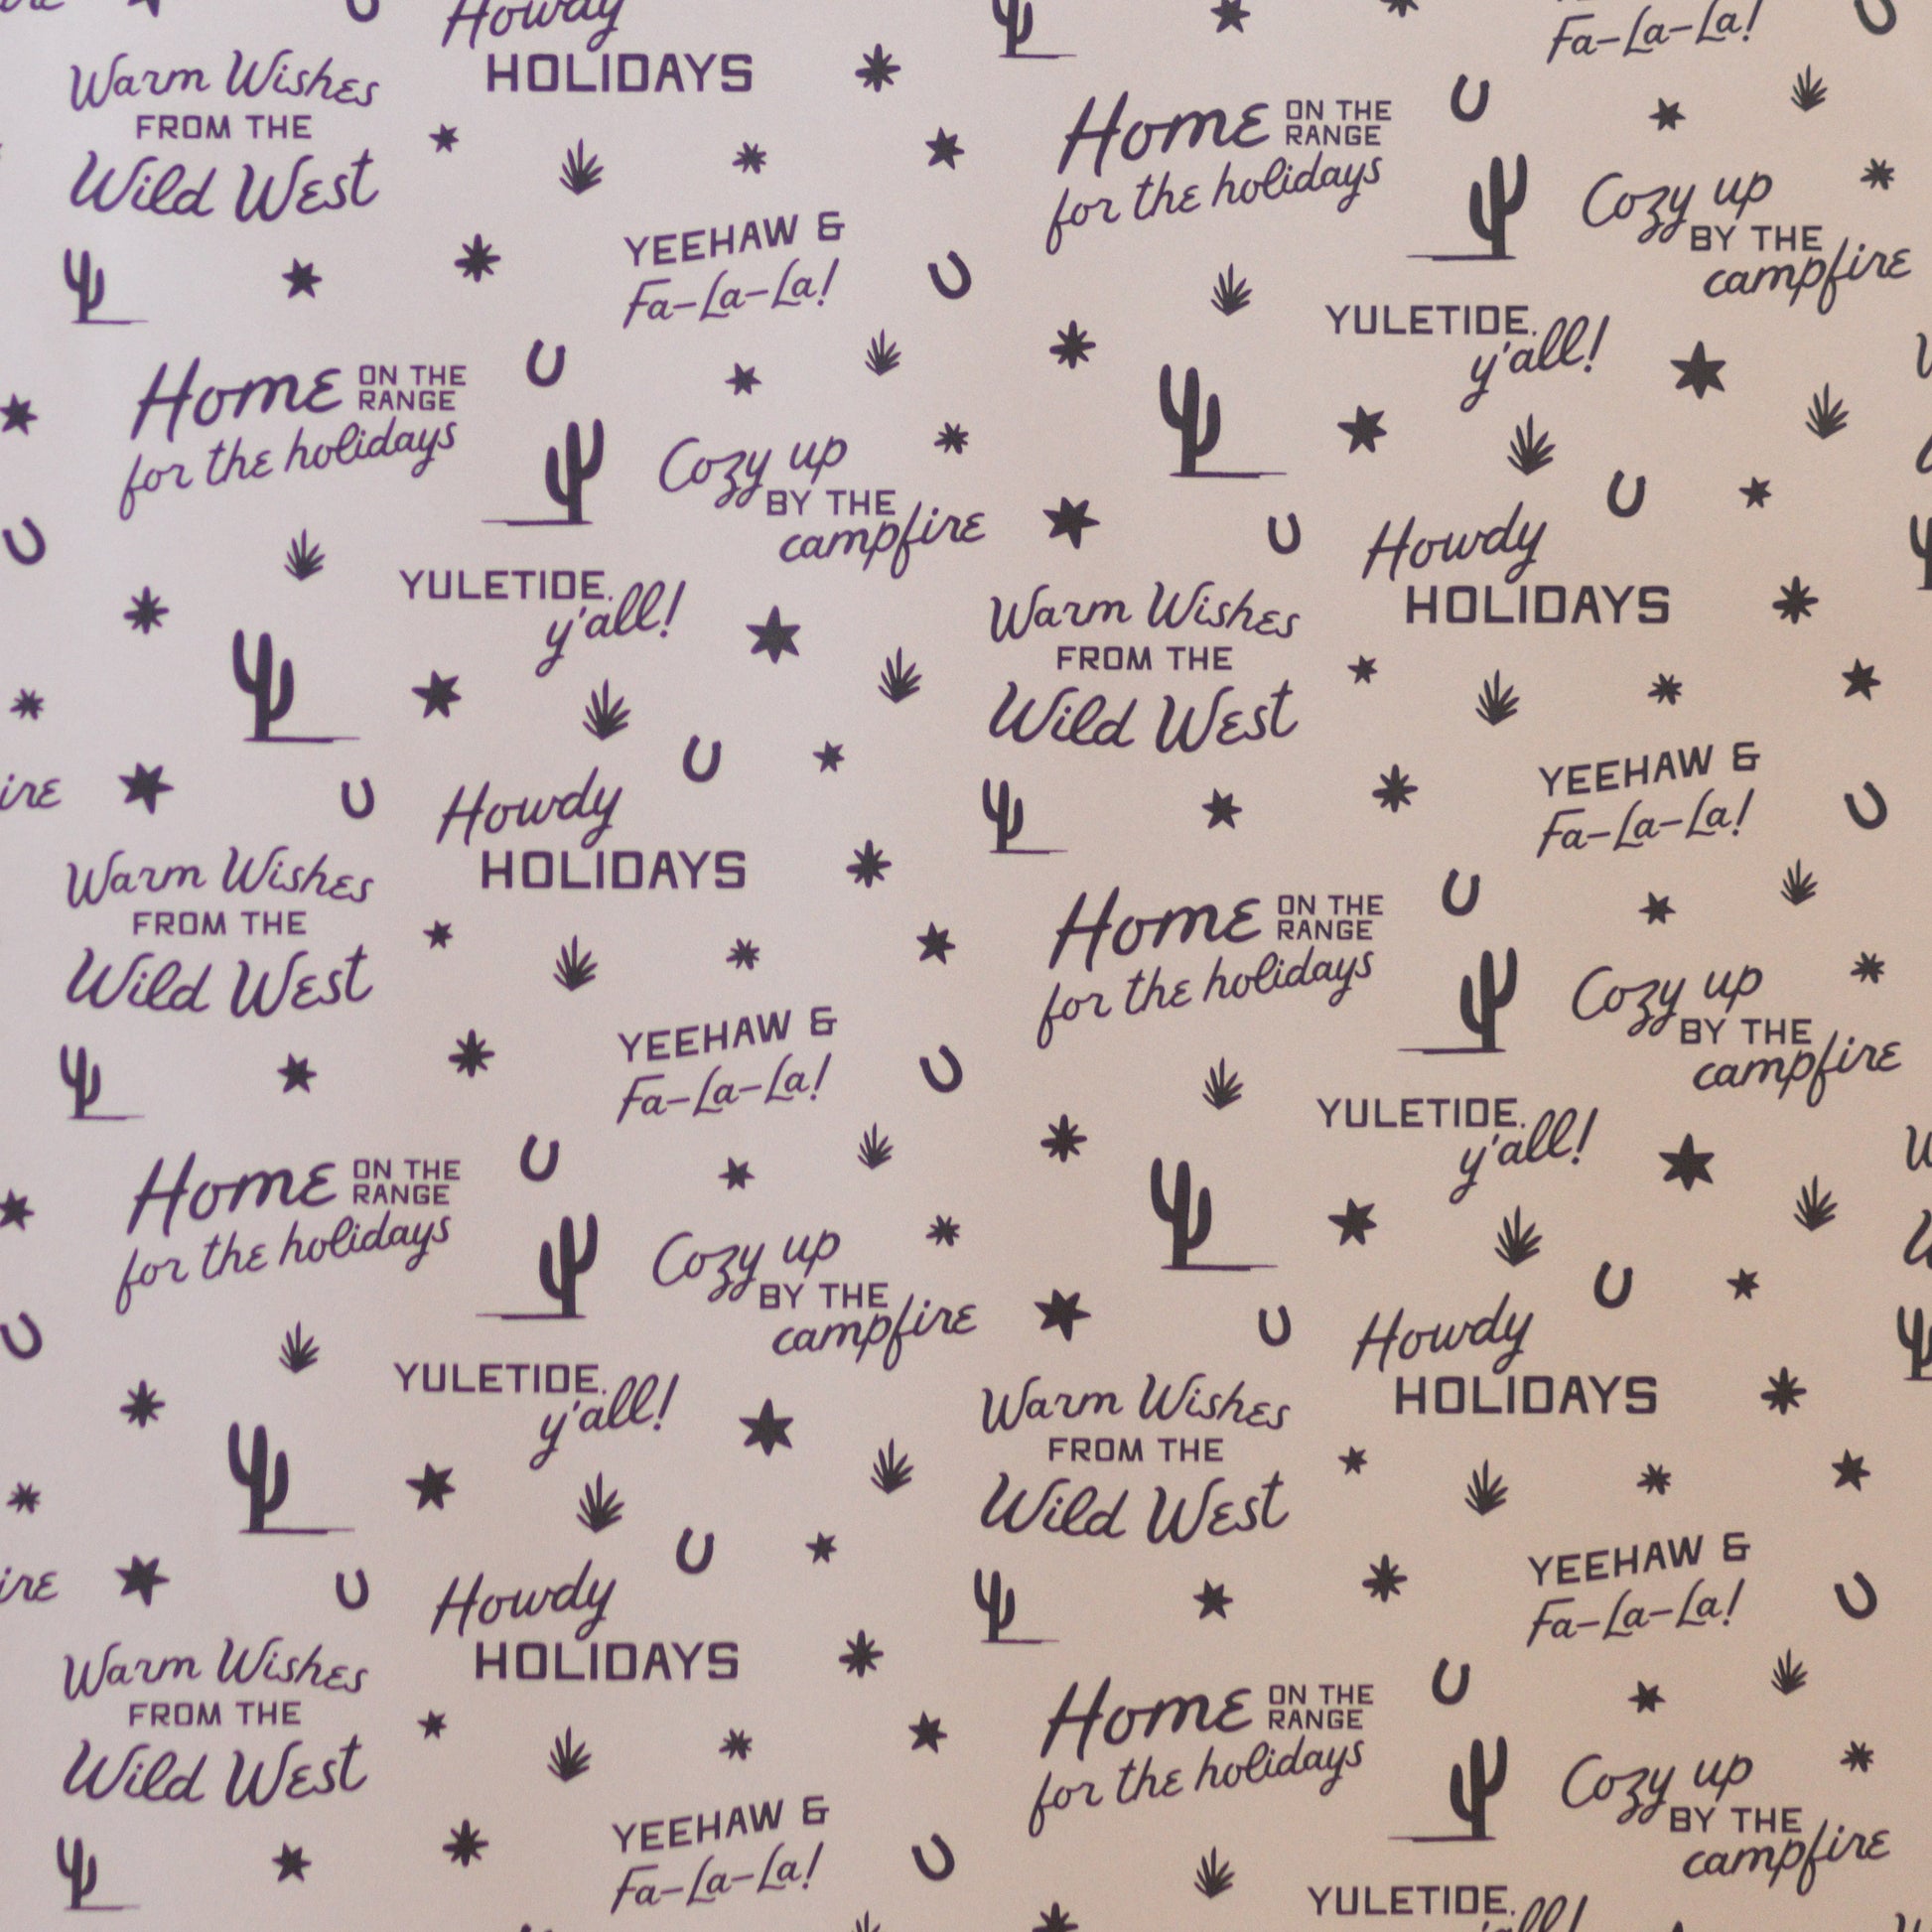 Howdy
HOLIDAYS
Fa-La-La!
Warm Wishes
FROM THE
Wild West
Home ON THE
RANGE
for the holidays
Cozy up
BY THE
campfire
YEEHAW &
Fa-La-La!
YULETIDE,
y'all!
Home ON THE
RANGE
for the holidays
Cozy up
BY THE
campfire
Howdy
HOLIDAYS
YULETIDE,
y'all!
Warm Wishes
FROM THE
Wild West
YEEHAW &
Fa-La-La!
Howdy
HOLIDAYS
Warm Wishes
FROM THE
Wild West
Home ON THE
RANGE
for the holidays
Cozy up
BY THE
campfire
YEEHAW &
Fa-La-La!
YULETIDE,
y'all!
Home ON THE
RANGE
for the holidays
Cozy up
BY THE
campfire
Howdy
HOLIDAYS
YULETIDE,
y'all!
Warm Wishes
FROM THE
Wild West
YEEHAW &
Fa-La-La!
Howdy
HOLIDAYS
Warm Wishes
FROM THE
Wild West
Home ON THE
RANGE
for the holidays
Cozy up
BY THE
campfire
YEEHAW &
Fa-La-La!
YULETIDE,
y'all!